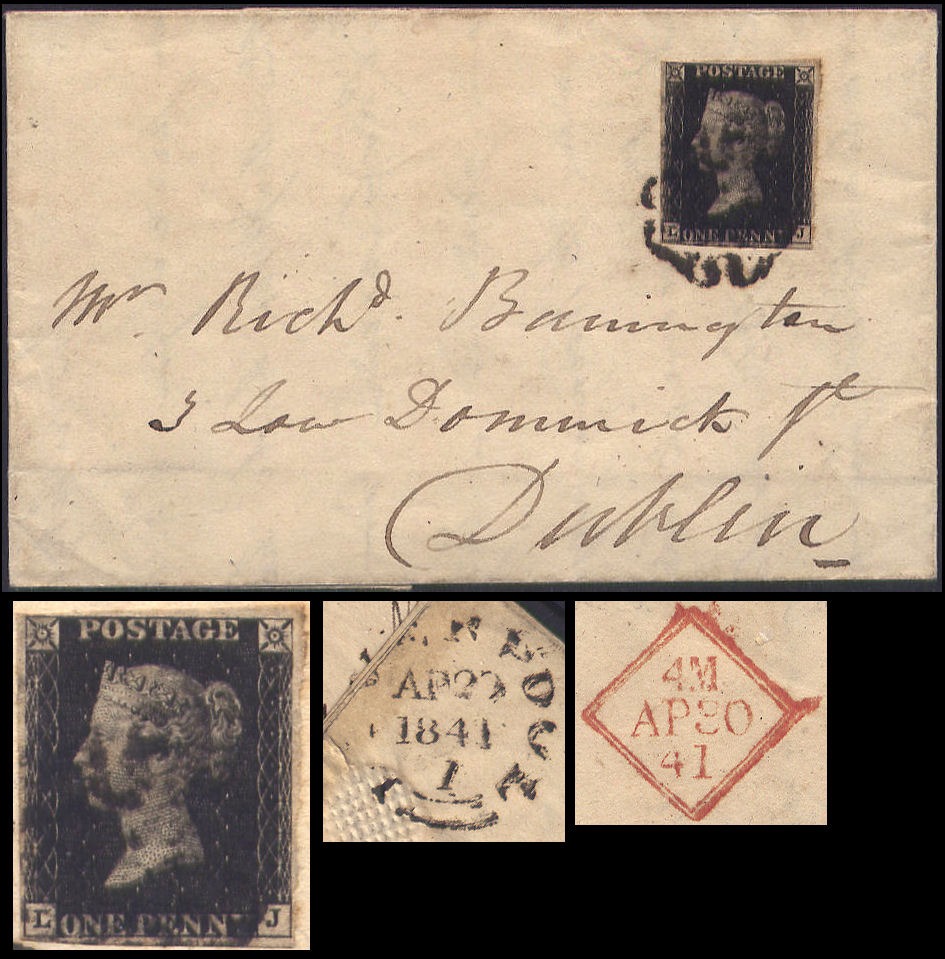 POSTAGE
L ONE PENNY J
Mr Richd. Barrington
3 Low Dominick St
Dublin
POSTAGE
L ONE PENNY J
AP 20
1841
1
4M
AP20
41